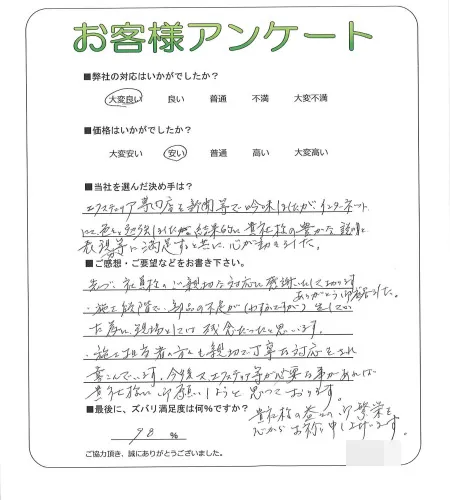 お客様アンケート
■弊社の対応はいかがでしたか?
大変良い 良い 普通 不満 大変不満
■価格はいかがでしたか?
大変安い 安い 普通 高い 大変高い
■当社を選んだ決め手は?
エクステリア専門店を新聞等で吟味しましたがインターネット
にて色々勉強しました結果的に貴社様の豊かな説明と
表現等に満足すると共に心が動きました。
■ご感想・ご要望などをお書き下さい。
先づ、社員様の心親切な対応に感謝いたして居ります
ありがとう御座いました。
・施工段階で、部品の不足が(わずかですが)生じて
為に、現場としては残念だったと思います。
・施工担当者の方も親切で丁寧な対応をされ
喜こんでいます。今後又、エクステリア等が必要な事があれば
貴社様に御願いしようと思っております。
■最後に、ズバリ満足度は何%ですか?
98 %
貴社様の益々の御繁栄を
心からお祈り申し上げます。
ご協力頂き、誠にありがとうございました。